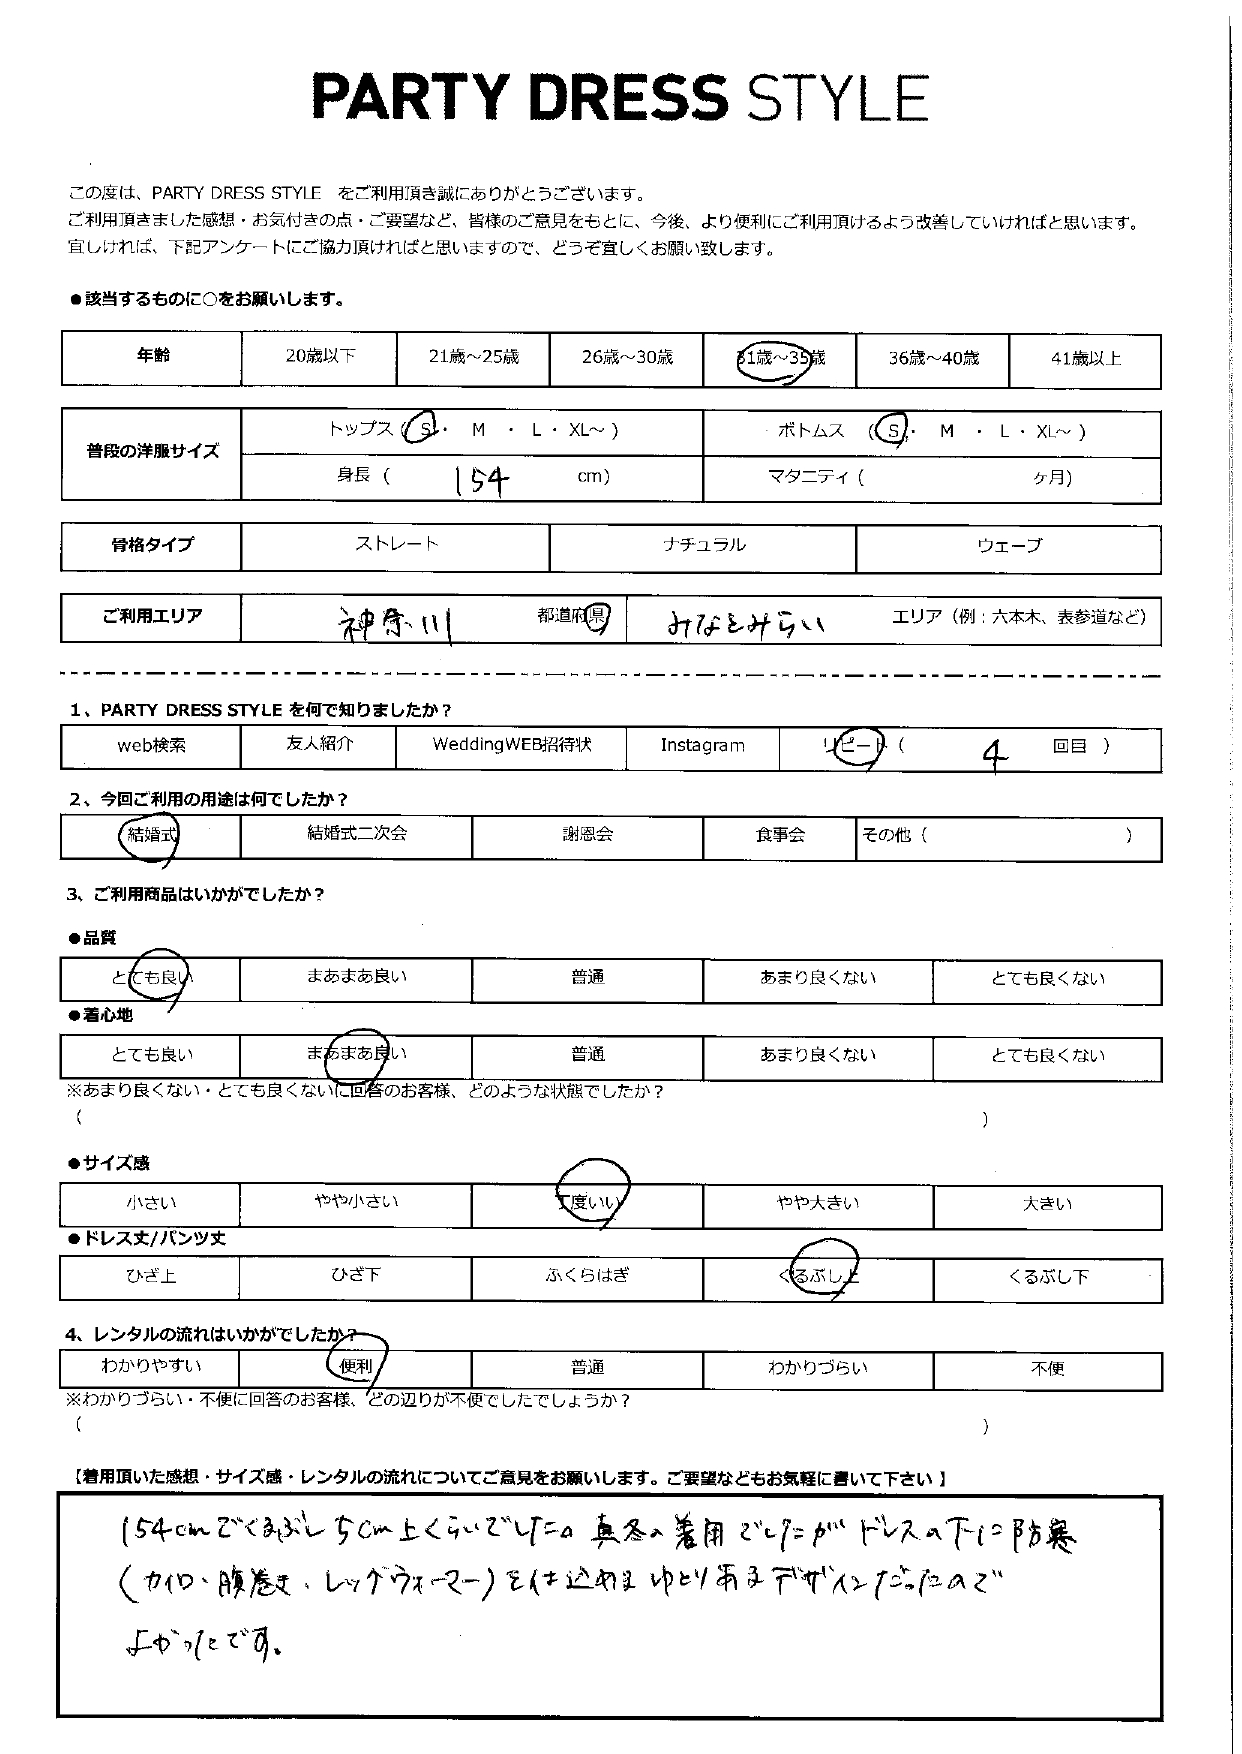 PARTY DRESS STYLE
この度は、PARTY DRESS STYLE をご利用頂き誠にありがとうございます。
ご利用頂きました感想・お気付きの点・ご要望など、皆様のご意見をもとに、今後、より便利にご利用頂けるよう改善していければと思います。
宜しければ、下記アンケートにご協力頂ければと思いますので、どうぞ宜しくお願い致します。
●該当するものに○をお願いします。
年齢 20歳以下 21歳～25歳 26歳～30歳 31歳～35歳 36歳～40歳 41歳以上
普段の洋服サイズ トップス ( S ・ M ・ L ・ XL～ ) ボトムス ( S ・ M ・ L ・ XL～ )
身長 ( 154 cm) マタニティ ( ヶ月)
骨格タイプ ストレート ナチュラル ウェーブ
ご利用エリア 神奈川 都道府県 みなとみらい エリア（例：六本木、表参道など）
1、PARTY DRESS STYLE を何で知りましたか？
web検索 友人紹介 WeddingWEB招待状 Instagram リピート ( 4 回目 )
2、今回ご利用の用途は何でしたか？
結婚式 結婚式二次会 謝恩会 食事会 その他 ( )
3、ご利用商品はいかがでしたか？
●品質
とても良い まあまあ良い 普通 あまり良くない とても良くない
●着心地
とても良い まあまあ良い 普通 あまり良くない とても良くない
※あまり良くない・とても良くないに回答のお客様、どのような状態でしたか？
( )
●サイズ感
小さい やや小さい 丁度いい やや大きい 大きい
●ドレス丈/パンツ丈
ひざ上 ひざ下 ふくらはぎ くるぶし上 くるぶし下
4、レンタルの流れはいかがでしたか？
わかりやすい 便利 普通 わかりづらい 不便
※わかりづらい・不便に回答のお客様、どの辺りが不便でしたでしょうか？
( )
【着用頂いた感想・サイズ感・レンタルの流れについてご意見をお願いします。ご要望などもお気軽に書いて下さい】
154cmでくるぶし5cm上くらいでした。真冬の着用でしたがドレスの下に防寒
(カイロ・腹巻き・レッグウォーマー)を仕込めるゆとりあるデザインだったので
よかったです。